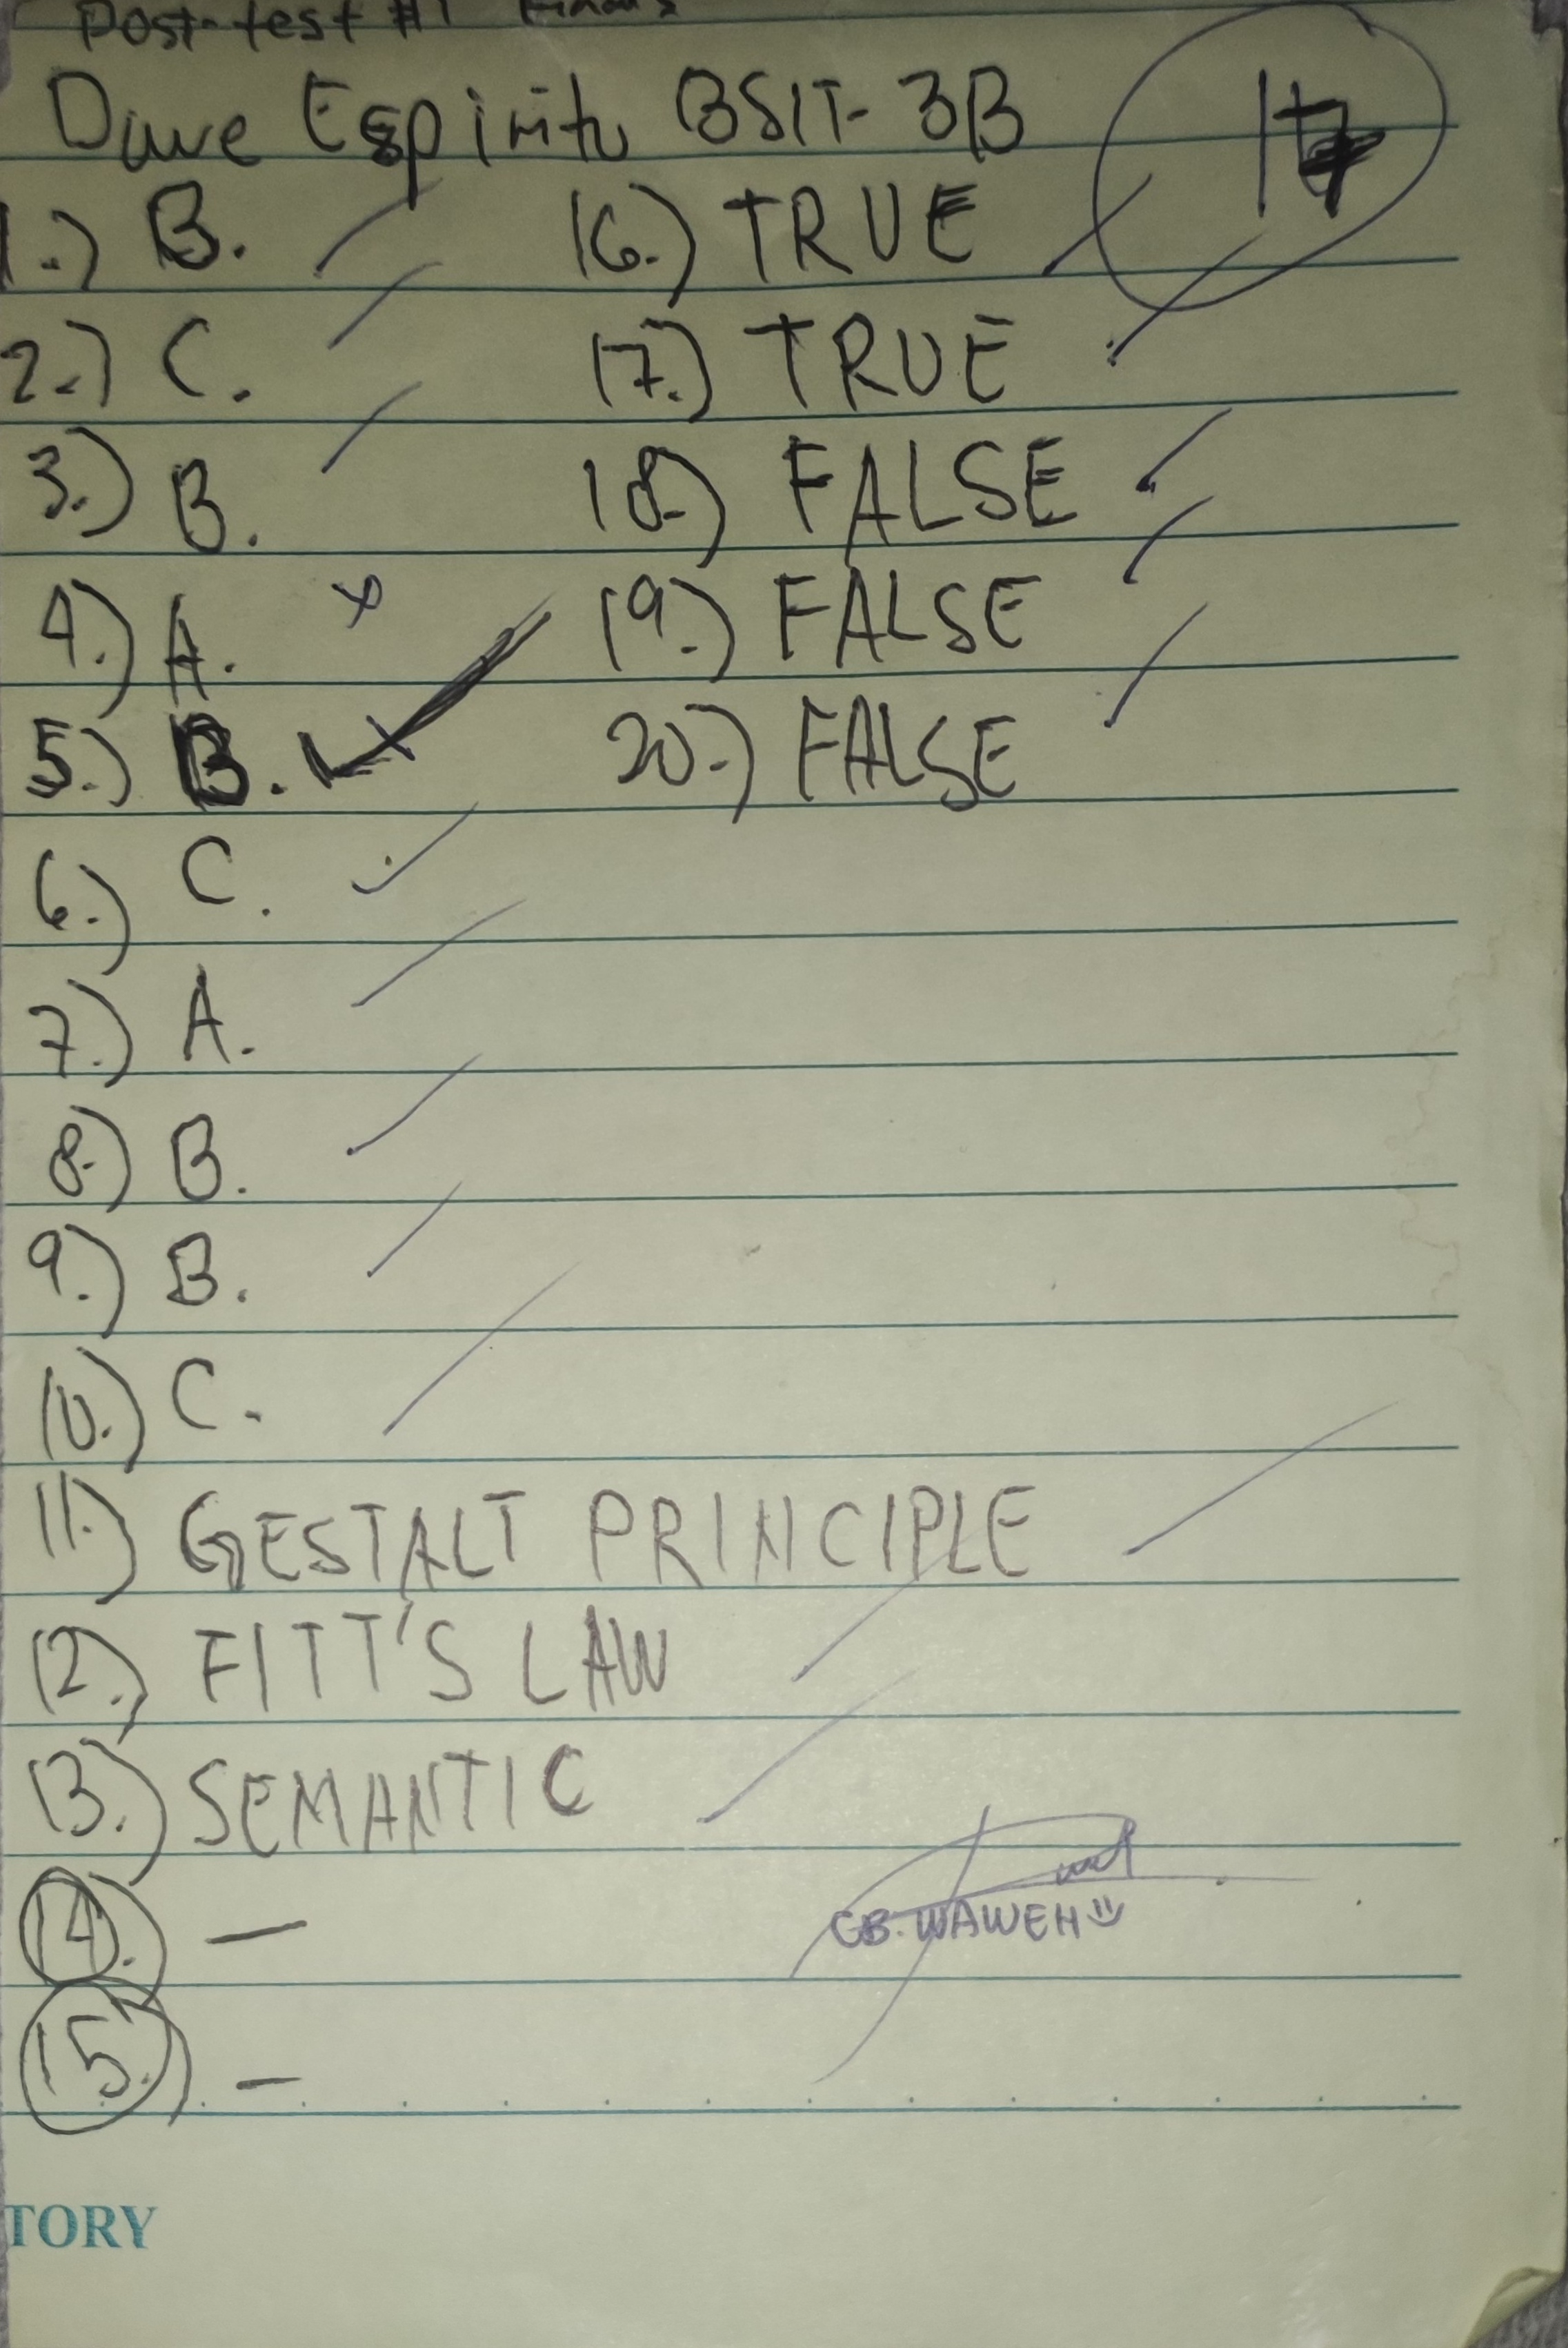 Post-test #1 Finals
Dave Espiritu BSIT-3B
1.) B.
2.) C.
3.) B.
4.) A.
5.) B.
6.) C.
7.) A.
8.) B.
9.) B.
10.) C.
11.) GESTALT PRINCIPLE
12.) FITT'S LAW
13.) SEMANTIC
14.) —
15.) —
16.) TRUE
17.) TRUE
18.) FALSE
19.) FALSE
20.) FALSE
CB. WAWEH
TORY